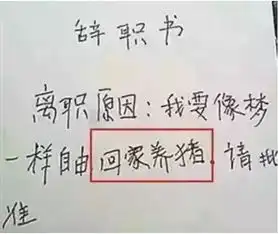 辞职书
离职原因:我要像梦
一样自由 回家养猪. 请批
准